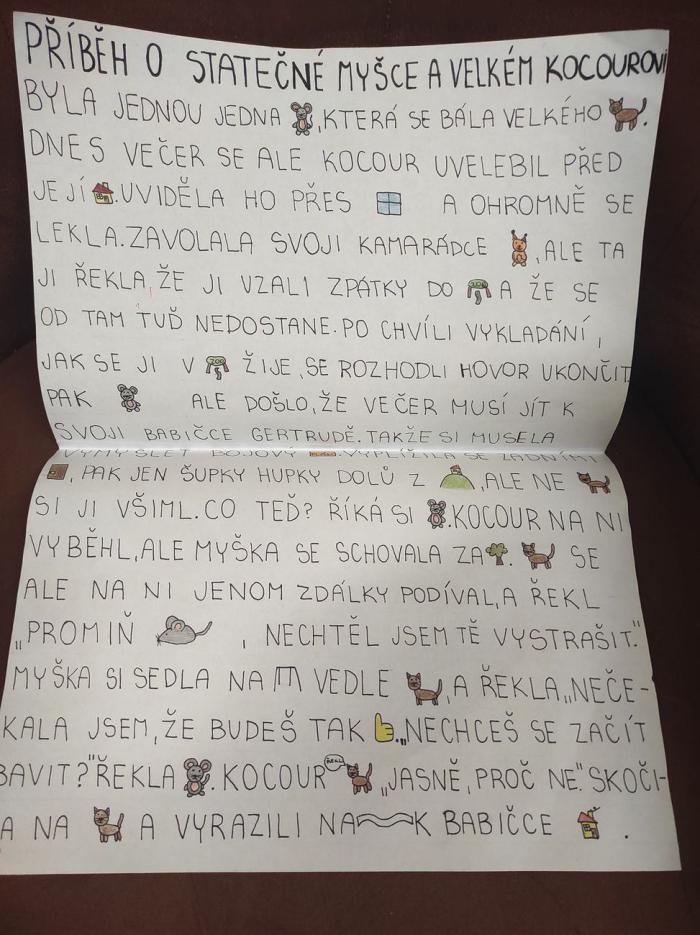 PŘÍBĚH O STATEČNÉ MYŠCE A VELKÉM KOCOUROVI
BYLA JEDNOU JEDNA , KTERÁ SE BÁLA VELKÉHO .
DNES VEČER SE ALE KOCOUR UVELEBIL PŘED
JEJÍ . UVIDĚLA HO PŘES A OHROMNĚ SE
LEKLA. ZAVOLALA SVOJI KAMARÁDCE , ALE TA
JI ŘEKLA, ŽE JI VZALI ZPÁTKY DO ZOO A ŽE SE
OD TAM TUĎ NEDOSTANE. PO CHVÍLI VYKLADÁNÍ,
JAK SE JI V ZOO ŽIJE, SE ROZHODLI HOVOR UKONČIT.
PAK ALE DOŠLO, ŽE VEČER MUSÍ JÍT K
SVOJI BABIČCE GERTRUDĚ. TAKŽE SI MUSELA
VYMYSLET BOJOVÝ . VYPLÍŽILA SE ZADNÍMI
, PAK JEN ŠUPKY HUPKY DOLŮ Z , ALE NE
SI JI VŠIML. CO TEĎ? ŘÍKÁ SI . KOCOUR NA NI
VYBĚHL, ALE MYŠKA SE SCHOVALA ZA . SE
ALE NA NI JENOM ZDÁLKY PODÍVAL, A ŘEKL
„PROMIŇ , NECHTĚL JSEM TĚ VYSTRAŠIT."
MYŠKA SI SEDLA NA VEDLE , A ŘEKLA „NEČE-
KALA JSEM, ŽE BUDEŠ TAK . „NECHCEŠ SE ZAČÍT
BAVIT?" ŘEKLA . KOCOUR ŘEKL „JASNĚ, PROČ NE." SKOČI-
A NA A VYRAZILI NA K BABIČCE .